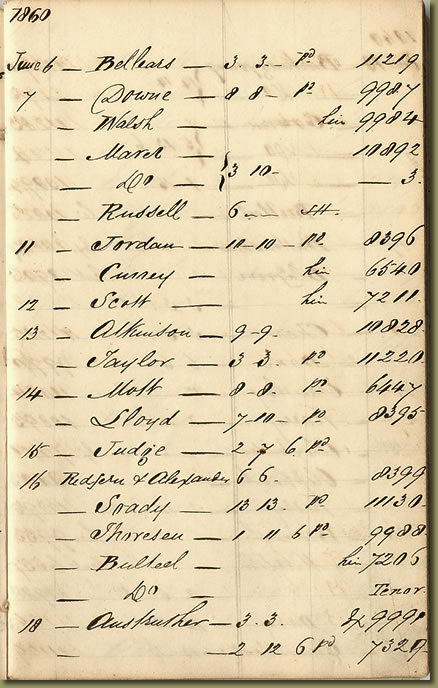 1860
June 6 — Bellears — 3. 3 — Pd 11219
7 — Downe — 8 8 — Pd 9987
— Walsh — hire 9984
— Maret — 10892
— Do — } 3 10 — — 3.
— Russell — 6 — —
11 — Jordan — 10 — 10 — Pd 8396
— Currey — hire 6540
12 — Scott — hire 7211
13 — Atkinson — 9 - 9 — 10828
— Taylor — 3 3. Pd 11220
14 — Mott — 8 - 8 — Pd 6447
— Lloyd — 7 - 10 — Pd 8395
15 — Judge — 2 7 6 Pd
16 Redfern & Alexander 6 6. 8399
— Spady — 13 13. Pd 11130
— — 1 11 6 Pd 9988
— Bulteel — hire 7206
— Do Tenor
18 — Anstruther — 3. 3. 9991
— — 2 12 6 Pd 7329